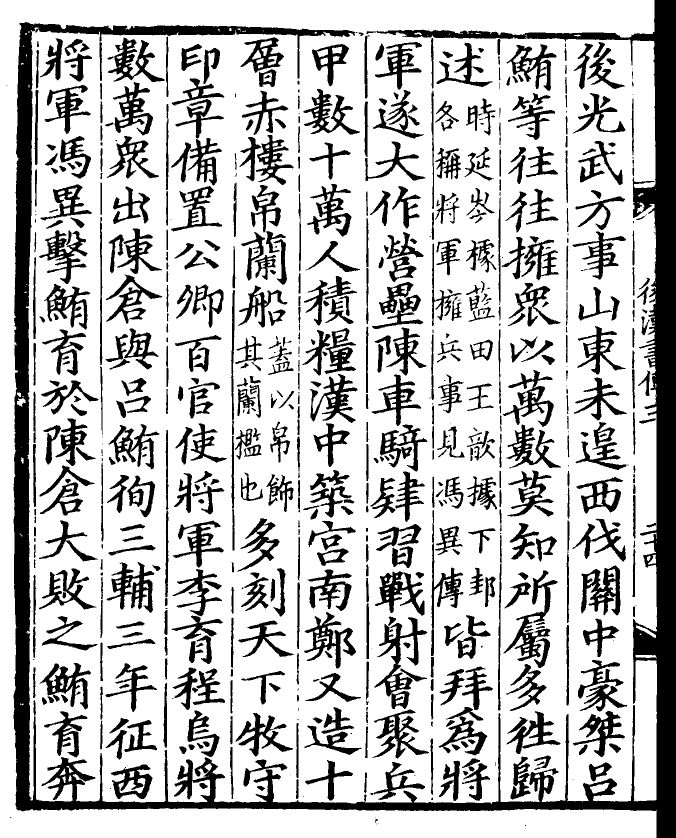 後漢書傳三
二十四
後光武方事山東未遑西伐關中豪桀呂
鮪等往往擁衆以萬數莫知所屬多往歸
述時延岑據藍田王歆據下邽各稱將軍擁兵事見馮異傳皆拜爲將
軍遂大作營壘陳車騎肄習戰射會聚兵
甲數十萬人積糧漢中築宮南鄭又造十
層赤樓帛蘭船蓋以帛飾其蘭檻也多刻天下牧守
印章備置公卿百官使將軍李育程烏將
數萬衆出陳倉與呂鮪徇三輔三年征西
將軍馮異擊鮪育於陳倉大敗之鮪育奔